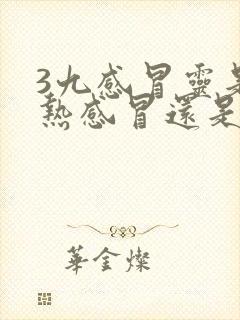 3九感冒靈是
熱感冒還是
華金燦